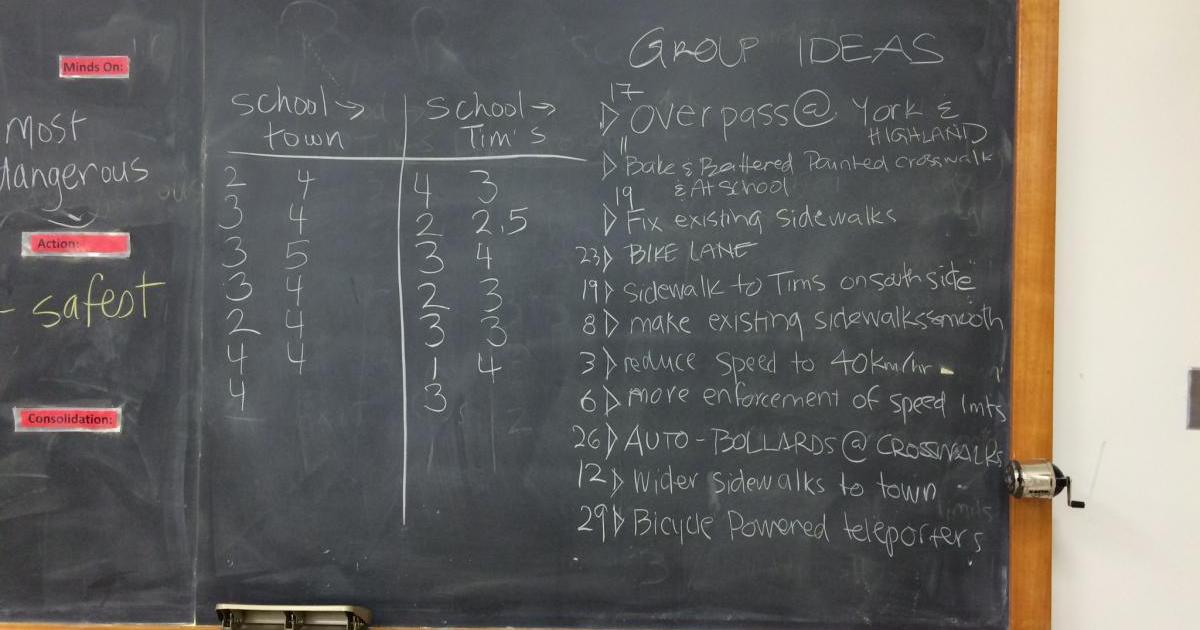 Minds On:
most
dangerous
Action:
- safest
Consolidation:
school → | School →
town | Tim's
2 4 | 4 3
3 4 | 2 2.5
3 5 | 3 4
3 4 | 2 3
2 4 | 3 3
4 4 | 1 4
4 | 3
GROUP IDEAS
17 ▷ overpass @ York &
HIGHLAND
11 ▷ Bake & Battered Painted crosswalk
& At school
19 ▷ Fix existing sidewalks
23 ▷ BIKE LANE
19 ▷ sidewalk to Tims on south side
8 ▷ make existing sidewalks smooth
3 ▷ reduce speed to 40km/hr
6 ▷ more enforcement of speed lmts
26 ▷ AUTO-BOLLARDS @ CROSSWALKS
12 ▷ Wider sidewalks to town
29 ▷ Bicycle Powered teleporters